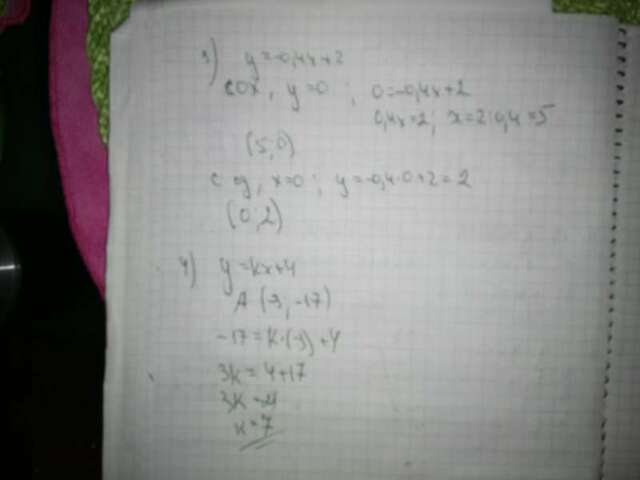 3) y=-0,4x+2
с ox, y=0; 0=-0,4x+2
0,4x=2; x=2:0,4=5
(5;0)
с oy, x=0; y=-0,4·0+2=2
(0;2)
4) y=kx+4
A(-3;-17)
-17=k·(-3)+4
3k=4+17
k=7